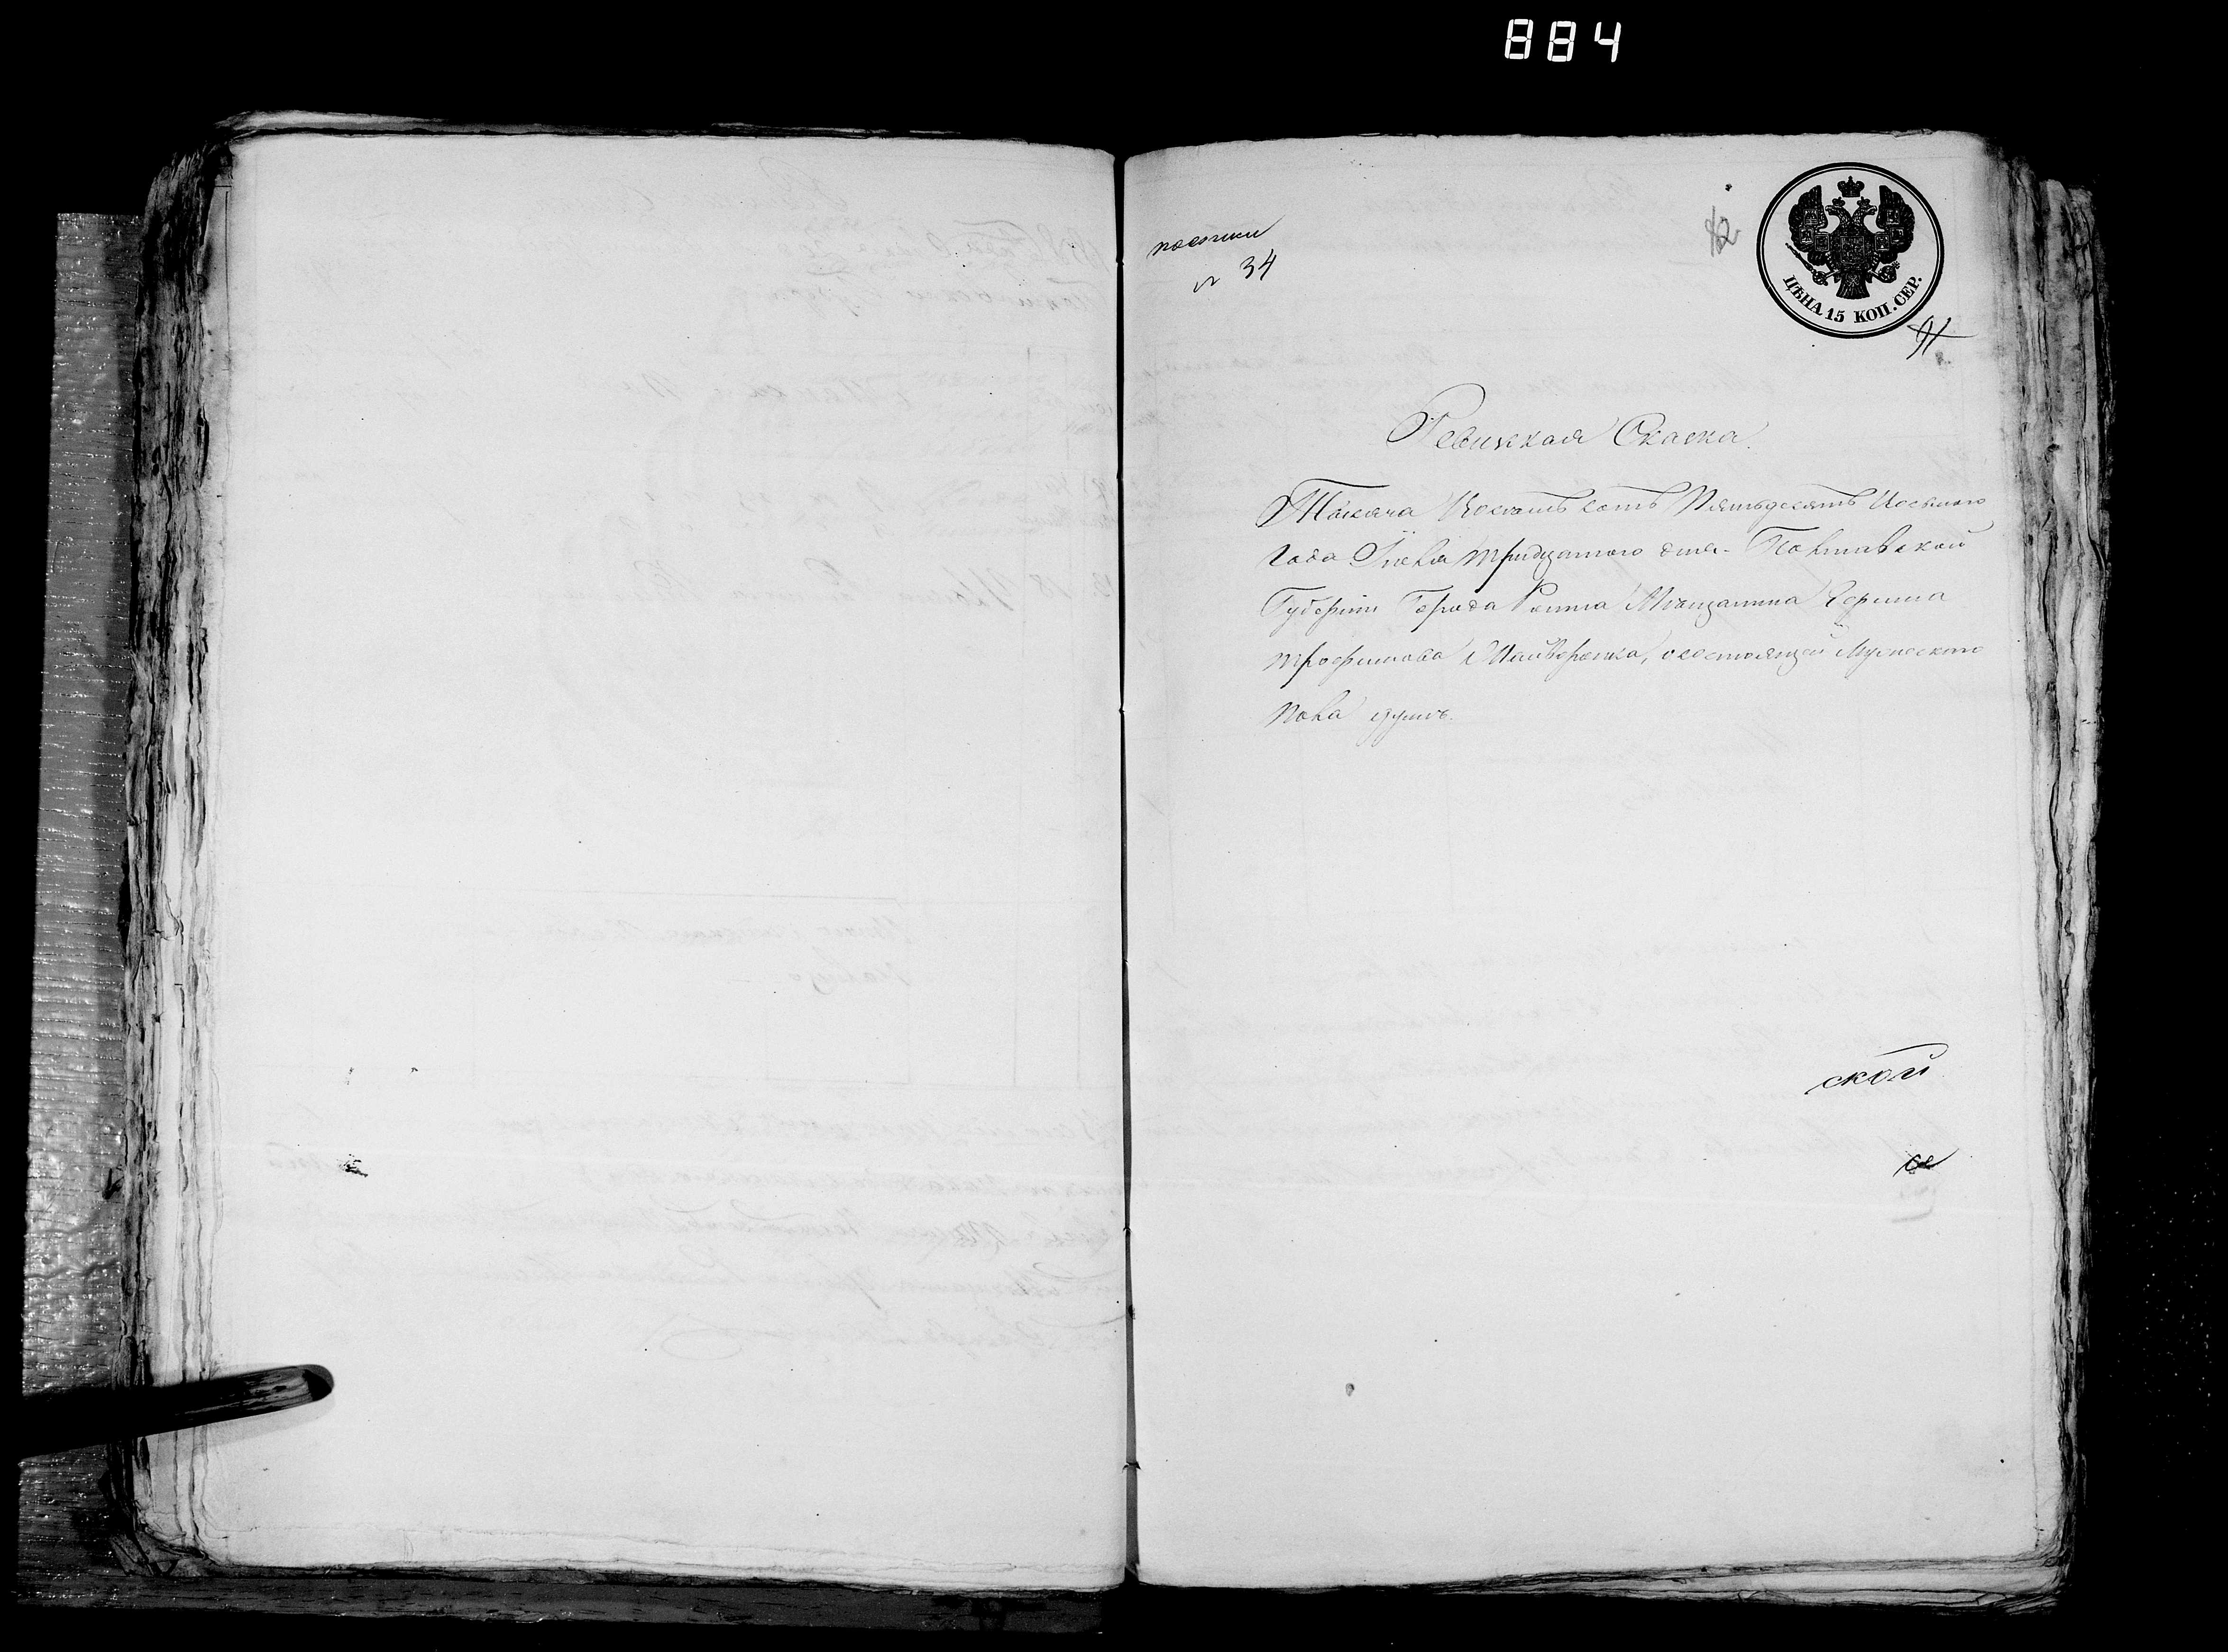 884
по описи
№ 34
92
ЦѢНА 15 КОП. СЕР.
91
Ревизская Сказка.
Тысяча восемь сотъ Пятьдесятъ Восьмого
года Іюля тридцатого дня. Полтавской
Губерніи Города Ромна Мѣщанина
трофимова о состоящей мужеского
пола душъ.
ской